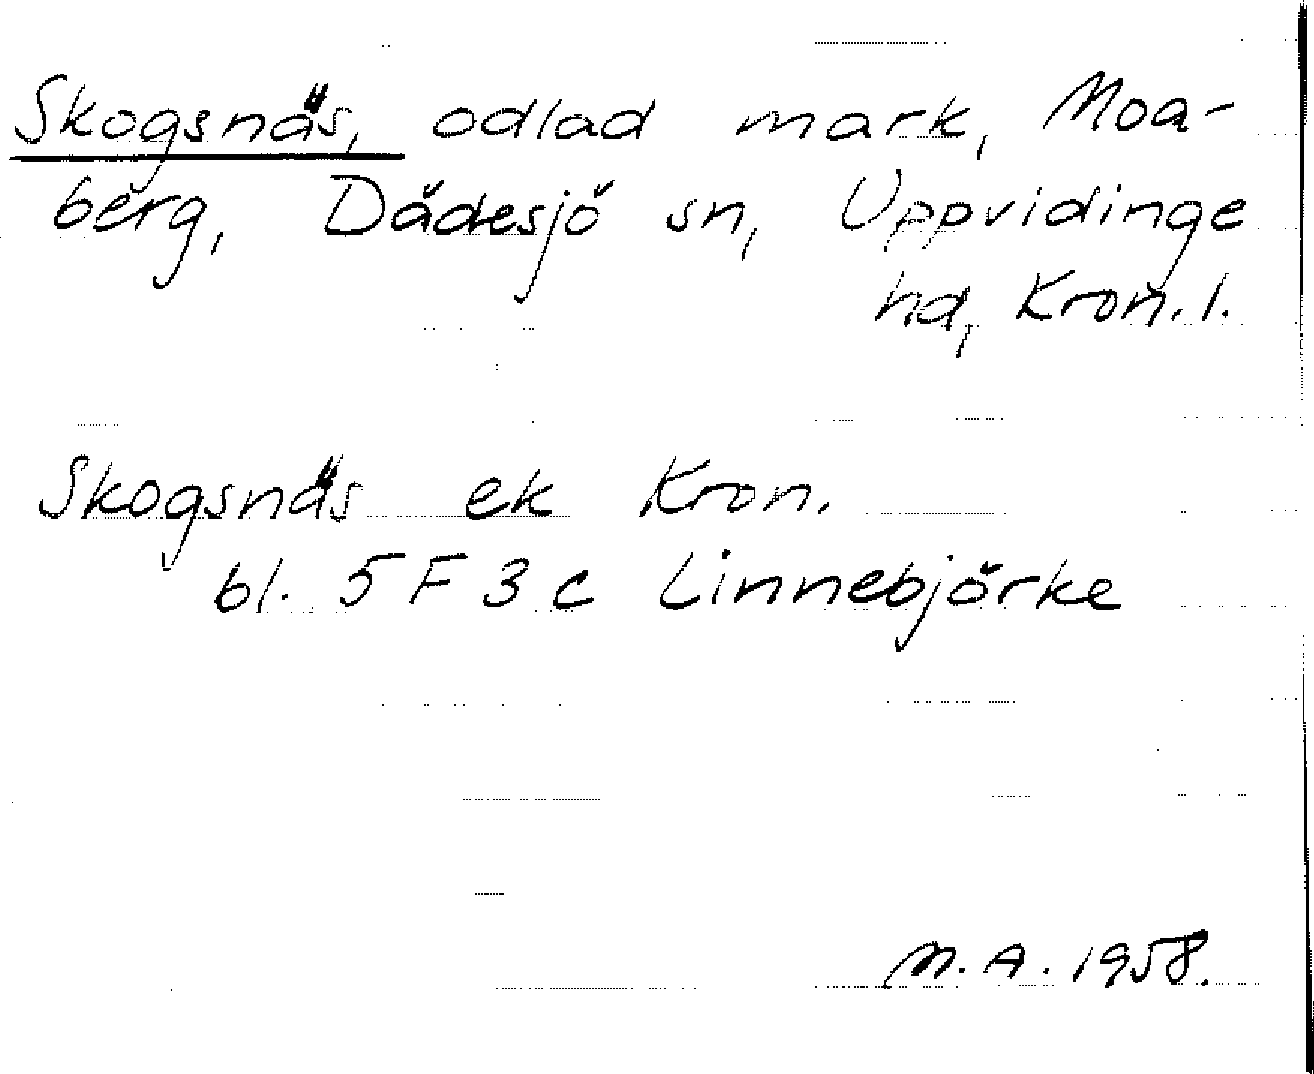 Skogsnäs, odlad mark, Moa-
berg, Dädesjö sn, Uppvidinge
hd, Kron. l.
Skogsnäs ek Kron.
bl. 5 F 3 c Linnebjörke
M. A. 1958.